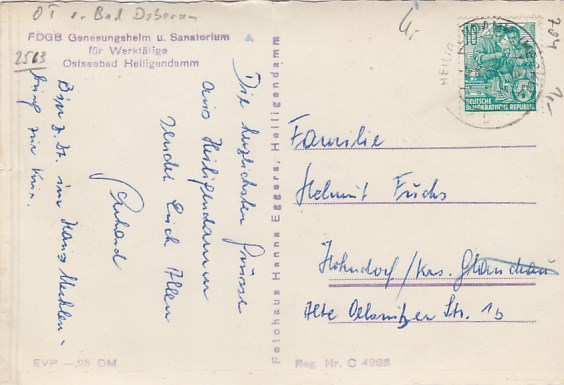 OT v. Bad Doberan
FDGB Genesungsheim u. Sanatorium
für Werktätige
Ostseebad Heiligendamm
2563
Die herzlichsten Grüsse
aus Heiligendamm
sendet Euch Allen
Gerhard
Bin z. Zt. im Haus Mecklen-
burg zur Kur.
EVP —,25 DM
Fotohaus Hanna Eggers, Heiligendamm
704
10
DEUTSCHE
DEMOKRATISCHE REPUBLIK
Familie
Helmut Fuchs
Hohndorf/Krs. Glauchau
Alte Oelsnitzer Str. 1b
Reg. Nr. C 4986